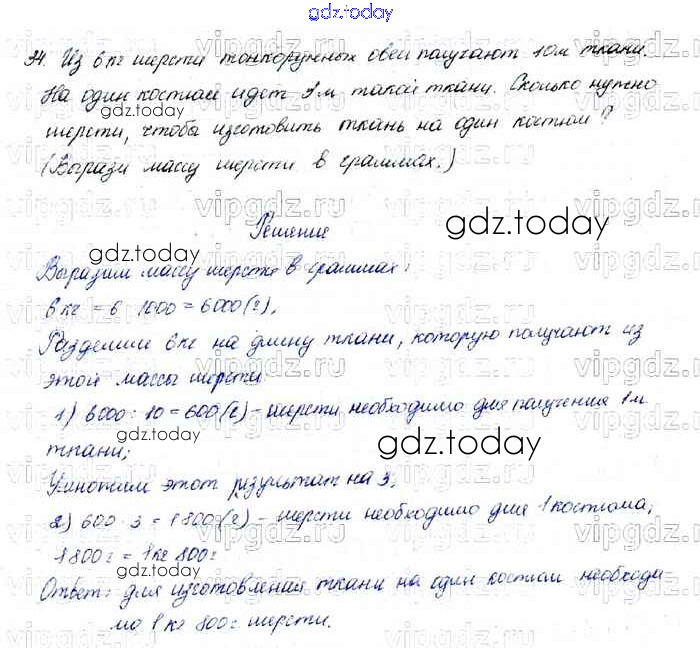 gdz.today
34. Из 6 кг шерсти тонкорунных овец получают 10 м ткани.
На один костюм идет 3 м такой ткани. Сколько нужно
шерсти, чтобы изготовить ткань на один костюм?
(Вырази массу шерсти в граммах.)
Решение
gdz.today
gdz.today
Выразим массу шерсти в граммах:
6 кг = 6 · 1000 = 6000 (г),
gdz.today
Разделим 6 кг на длину ткани, которую получают из
этой массы шерсти
1) 6000 : 10 = 600 (г) - шерсти необходимо для получения 1 м
ткани;
gdz.today
gdz.today
Умножим этот результат на 3;
2) 600 · 3 = 1800 (г) - шерсти необходимо для 1 костюма;
1800 г = 1 кг 800 г
gdz.today
Ответ: для изготовления ткани на один костюм необходи
мо 1 кг 800 г шерсти.
vipgdz.ru